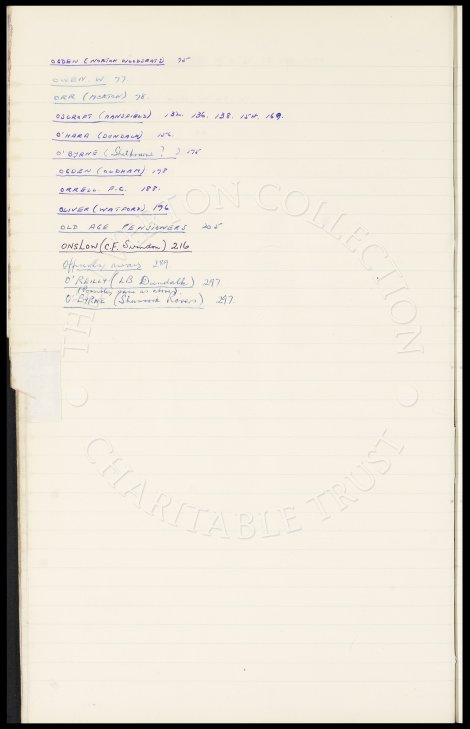 OGDEN (NORTON WOODSEATS) 75
OWEN. W 77.
ORR (MORTON) 78.
OSCROFT (MANSFIELD) 132. 136. 138. 154. 169.
O'HARA (DUNDALK) 156.
O'BYRNE (Shelbourne ?) 175
OGDEN (OLDHAM) 178
ORRELL. F.C. 188.
OLIVER (WATFORD) 196
OLD AGE PENSIONERS 205
ONSLOW (C.F. Swindon) 216
away 289
O'REILLY (LB Dundalk) 297
(Possibly same as above)
O'BYRNE (Shamrock Rovers) 297.
THE NEILSON COLLECTION
CHARITABLE TRUST